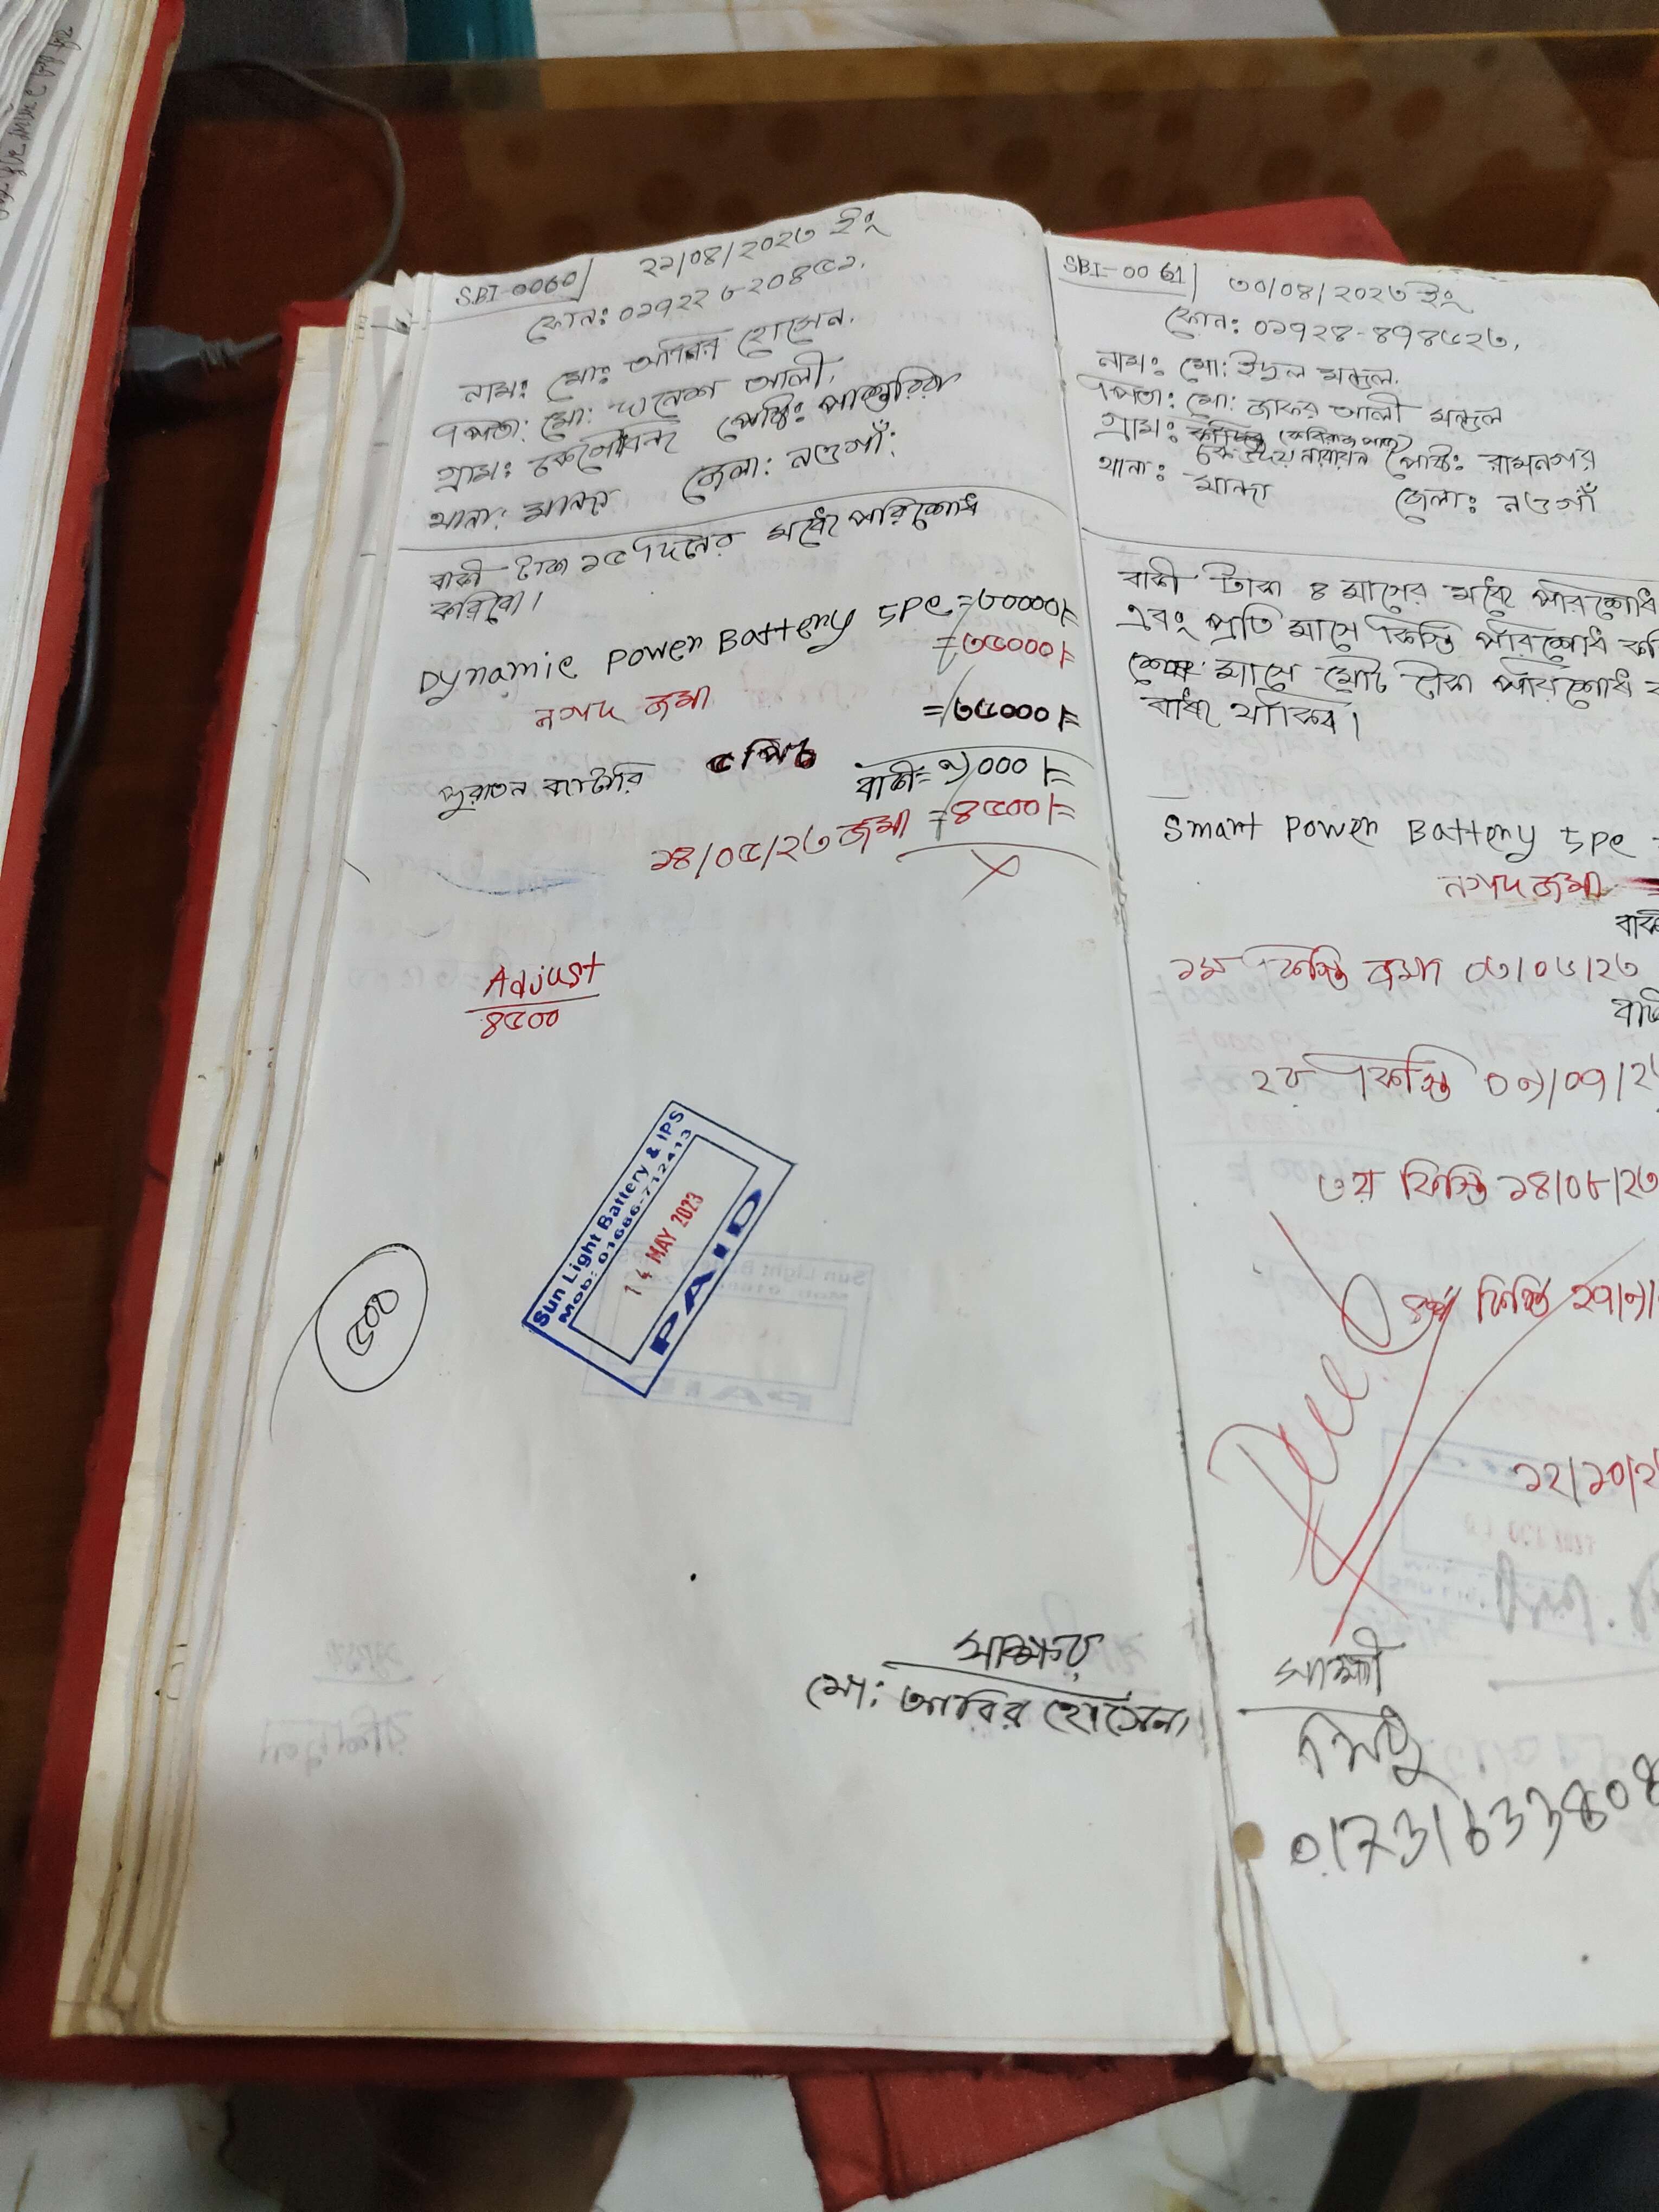 SBI-0060
২২/০৪/২০২৩ ইং
ফোন: ০১৭২২৮২০৪৫১.
নাম: মো: আবির হোসেন.
পিতা: মো: দানেশ আলী.
গ্রাম: পোষ্ট:
থানা: মান্দা জেলা: নওগাঁ:
বাকী টাকা ১৫ দিনের মধ্যে পরিশোধ
করিবো।
Dynamic Power Battery 5Pc = ৮০০০০/=
নগদ জমা = ৩৫০০০/=
= ৩৫০০০/=
পুরাতন ব্যাটারি ৫ পিচ
বাকী = ৯০০০/=
১৪/০৫/২৩ জমা = ৪৫০০/=
Adjust
৪৫০০
Sun Light Battery & IPS
Mob: 01686-712413
14 MAY 2023
PAID
৫০০
সাক্ষর
মো: আবির হোসেন
SBI-0061
৩০/০৪/২০২৩ ইং
ফোন: ০১৭২৪-৪৭৪৫২৩.
নাম: মো: ইদুল মন্ডল.
পিতা: মো: জাফর আলী মন্ডল
গ্রাম: (কবিরাজ পাড়া)
নারায়ন পোষ্ট: রামনগর
থানা: মান্দা জেলা: নওগাঁ
বাকী টাকা ৪ মাসের মধ্যে পরিশোধ
এবং প্রতি মাসে কিস্তি পরিশোধ
শেষ মাসে মোট টাকা পরিশোধ
বাধ্য থাকিব।
Smart Power Battery 5Pc
নগদ জমা
১ম কিস্তি জমা ০৩/০৬/২৩
২য় কিস্তি ০৯/০৭/২
৩য় কিস্তি ১৪/০৮/২৩
৪র্থ কিস্তি ২৭/৯/
১২/১০/২
সাক্ষী